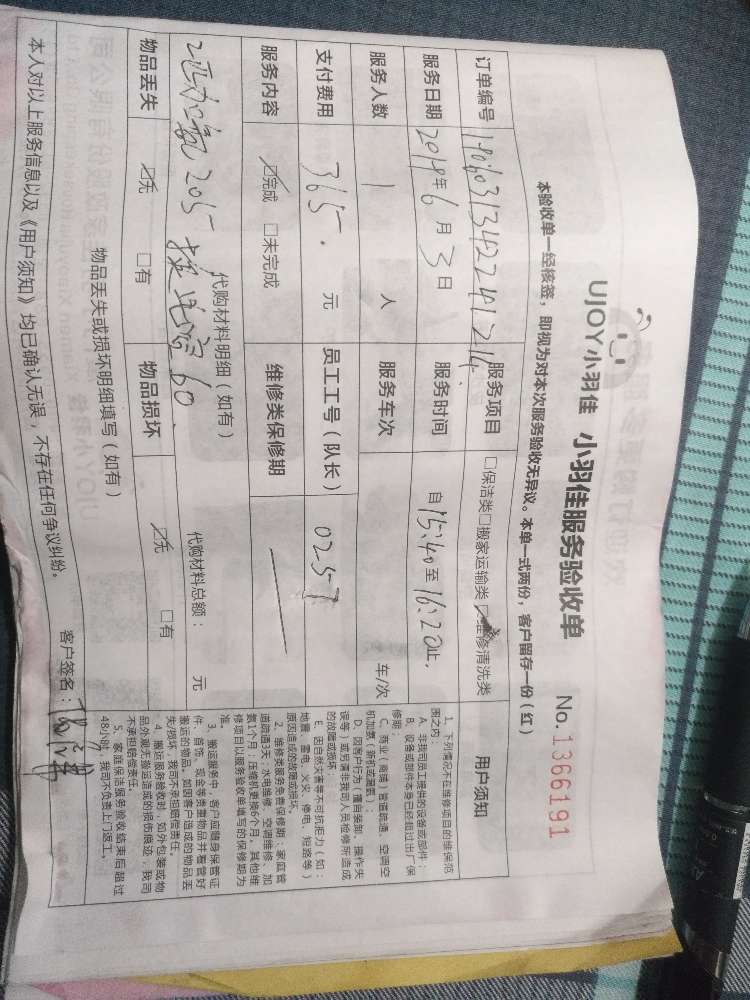 UJOY小羽佳 小羽佳服务验收单 No. 1366191
本验收单一经核签，即视为对本次服务验收无异议。本单一式两份，客户留存一份（红）
订单编号 服务项目 □保洁类□搬家运输类☑维修清洗类
服务日期 2018年6月3日 服务时间 自15:40至16:20止.
服务人数 1 人 服务车次 车/次
支付费用 365. 元 员工工号（队长） 0257
服务内容 ☑完成 □未完成 维修类保修期 —
代购材料明细（如有） 代购材料总额： 元
2匹加氟205 换电容60.
物品丢失 ☑无 □有 物品损坏 ☑无 □有
物品丢失或损坏明细填写（如有）
本人对以上服务信息以及《用户须知》均已确认无误，不存在任何争议纠纷。 客户签名：
用户须知
1、下列情况不在维修项目的维保范
围之内：
A、非我司员工提供的设备或部件；
B、设备或部件本身已经超过出厂保
修期；
C、商业（商铺）管道疏通、空调空
机加氨（新机或避震）；
D、因用户行为（擅自装卸、操作失
误等）或另请非我司人员检修所造成
的故障或损坏
E、因自然灾害等不可抗拒力（如：
地震、雷电、火灾、停电、短路等）
原因造成的故障或损坏。
2、维修类服务免费保修期：家庭管
道疏通3天；水电维修、空调维修、加
氨1个月；压缩机更换6个月，其他维
修项目以服务验收单填写的保修期为
准。
3、搬运服务中，客户应随身保管证
件、首饰、现金等贵重物品并看管好
搬运的物品。如因客户造成的物品丢
失/损坏，我司不承担赔偿责任。
4、搬运服务验收时，如外包装或物
品外观无搬运造成的损伤痕迹，我司
不承担赔偿责任。
5、家庭保洁服务验收结束后超过
48小时，我司不负责上门返工。